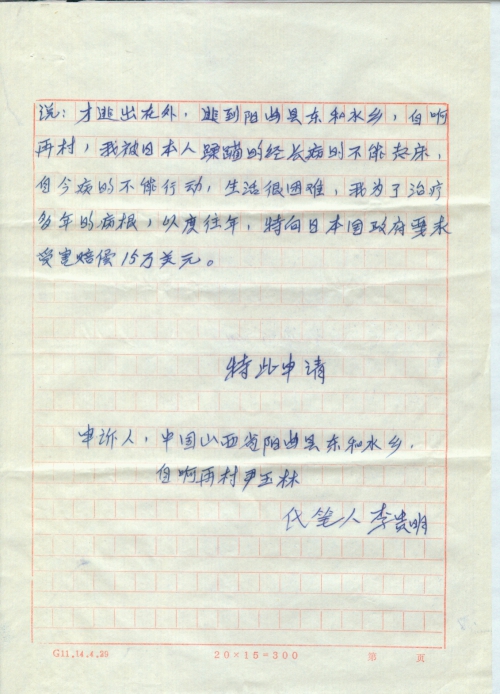 说：才逃出在外，逃到阳曲县东和水乡，白啊
再村，我被日本人蹂蹦的经长病的不能起床，
自今病的不能行动，生活很困难，我为了治疗
多年的病根，以度往年，特向日本国政府要求
受害赔偿15万美元。
特此申请
申诉人，中国山西省阳曲县东和水乡，
白啊再村尹玉林
代笔人李贵明
G11.14.4.20 20×15=300 第 页